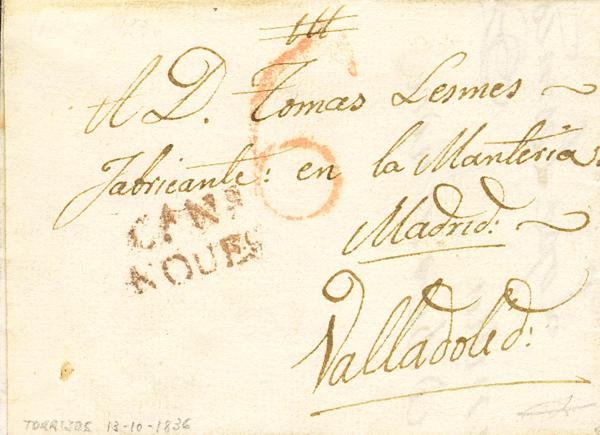 A D. Tomas Lesmes
fabricante: en la Manteria:
Madrid:
Valladolid:
6
TORRIJOS 13-10-1836